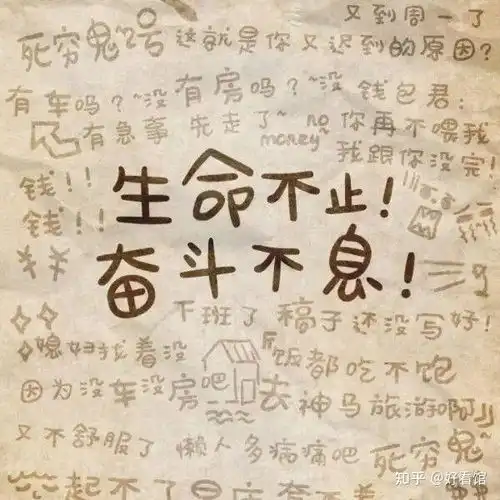 又到周一了
死穷鬼2号 这就是你又迟到的原因?
有车吗?~没 有房吗?~没 钱包君:
有急事 先走了~ no money~ 你再不喂我
我跟你没完!
钱!!
钱!!
生命不止!
奋斗不息!
下班了 稿子还没写好!
媳妇找着没 饭都吃不饱
因为没车没房吧 去神马旅游啊』
又不舒服了 懒人多病痛吧 死穷鬼~
知乎 @好看馆